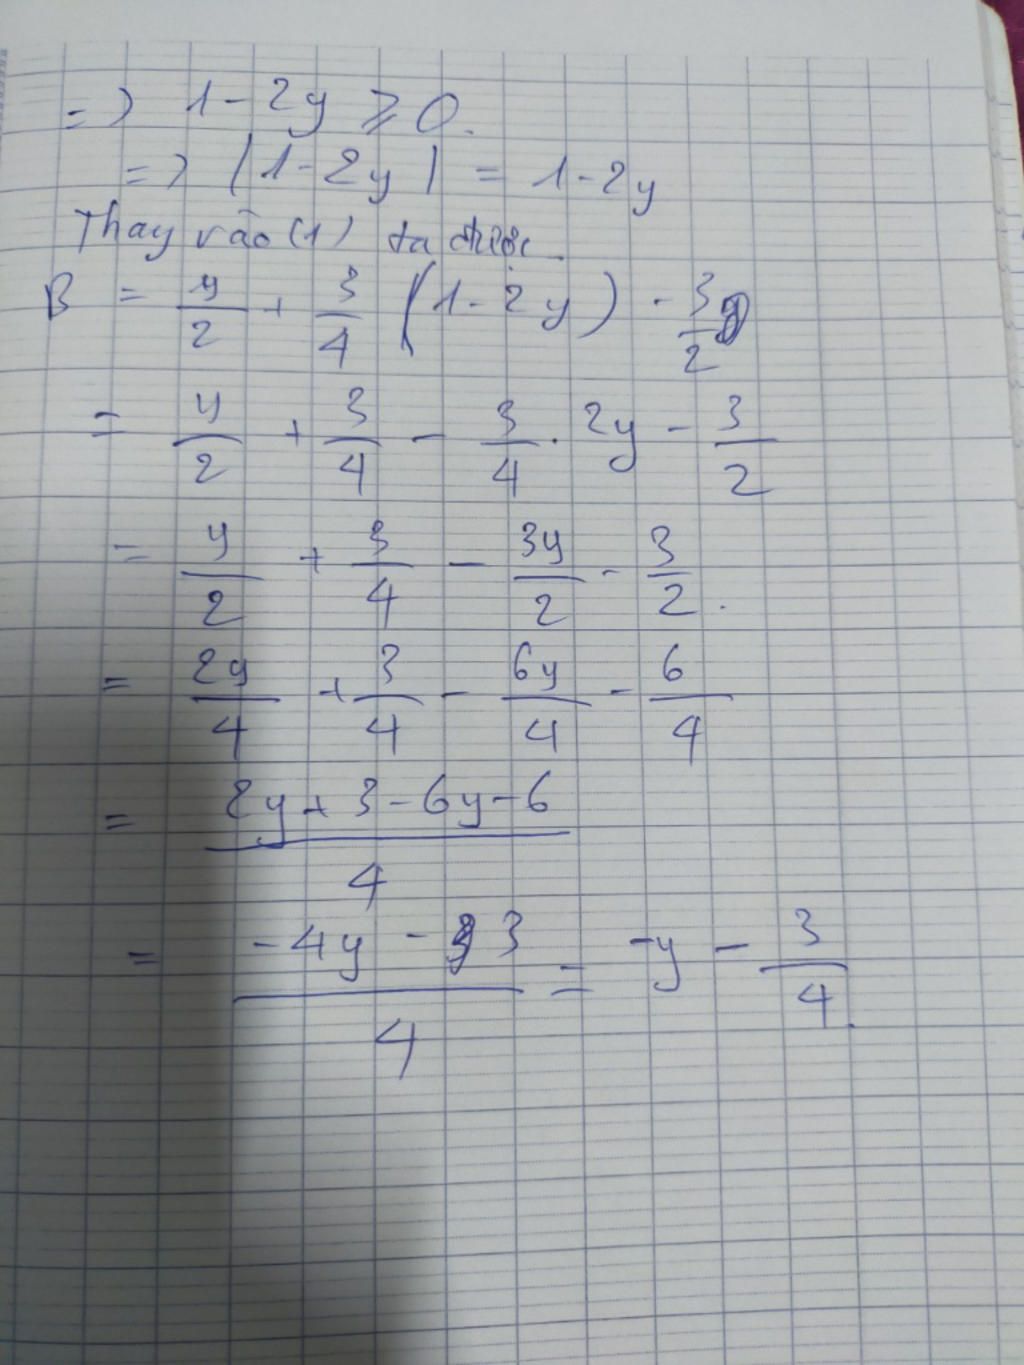 => 1 - 2y ⩾ 0.
=> |1 - 2y| = 1 - 2y
Thay vào (1) ta được.
B = y/2 + 3/4 (1 - 2y) - 3/2
= y/2 + 3/4 - 3/4 . 2y - 3/2
= y/2 + 3/4 - 3y/2 - 3/2.
= 2y/4 + 3/4 - 6y/4 - 6/4
= (2y + 3 - 6y - 6)/4
= (-4y - 3)/4 = -y - 3/4.